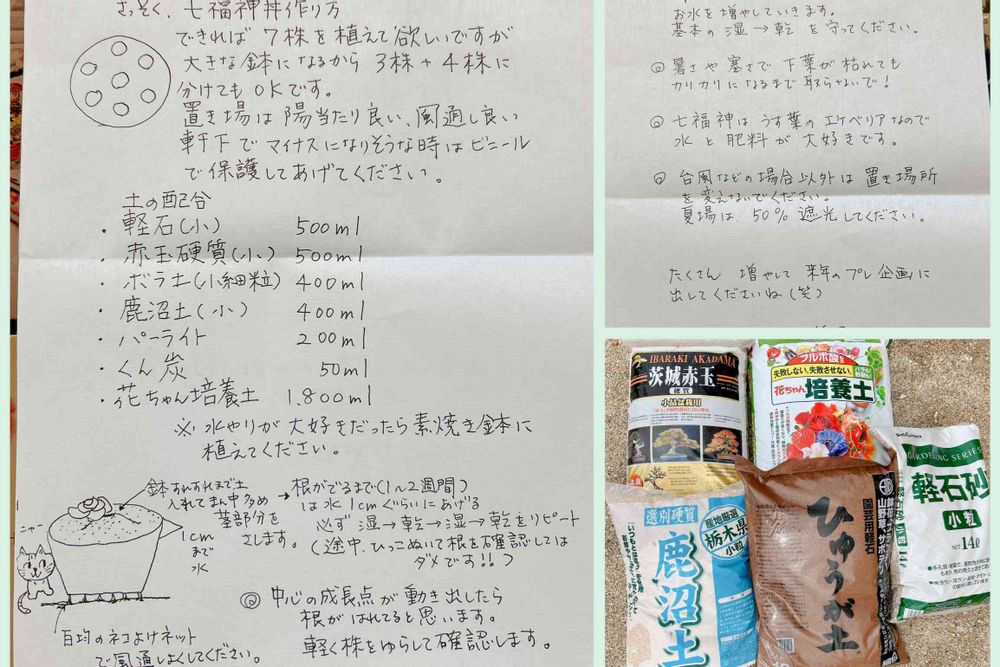 さっそく、七福神丼作り方
できれば7株を植えて欲しいですが
大きな鉢になるから3株+4株に
分けてもOKです。
置き場は陽当たり良い、風通し良い
軒下でマイナスになりそうな時はビニール
で保護してあげてください。
土の配合
・軽石(小) 500ml
・赤玉硬質(小) 500ml
・ボラ土(小細粒) 400ml
・鹿沼土(小) 400ml
・パーライト 200ml
・くん炭 50ml
・花ちゃん培養土 1.800ml
※水やりが大好きだったら素焼き鉢に
植えてください。
鉢すれすれまで土
入れてまん中多め
茎部分を
さします。
1cm
まで
水
ニャー
→根がでるまで(1~2週間)
は水1cmぐらいにあげる
必ず湿→乾→湿→乾をリピート
(途中、ひっこぬいて根を確認しては
ダメです!!)
◎中心の成長点が動き出したら
根がはれてると思います。
軽く株をゆらして確認します。
百均のネコよけネット
で風通しよくしてください。
お水を増やしていきます。
基本の湿→乾を守ってください。
◎暑さや塞さで下葉が枯れても
カリカリになるまで取らないで!
◎七福神はうす葉のエケベリアなので
水と肥料が大好きです。
◎台風などの場合以外は置き場所
を変えないでください。
夏場は、50%遮光してください。
たくさん増やして来年のプレ企画に
出してくださいね(笑)
IBARAKI AKADAMA
茨城赤玉
硬質
小品盆栽用
フルボ酸
失敗しない、失敗させない
花ちゃん
培養土
GARDENING SERIES
軽石砂
小粒
NET 14ℓ
選別硬質
鹿沼土
産地厳選
栃木県
小粒
ひゅうが土
園芸用軽石